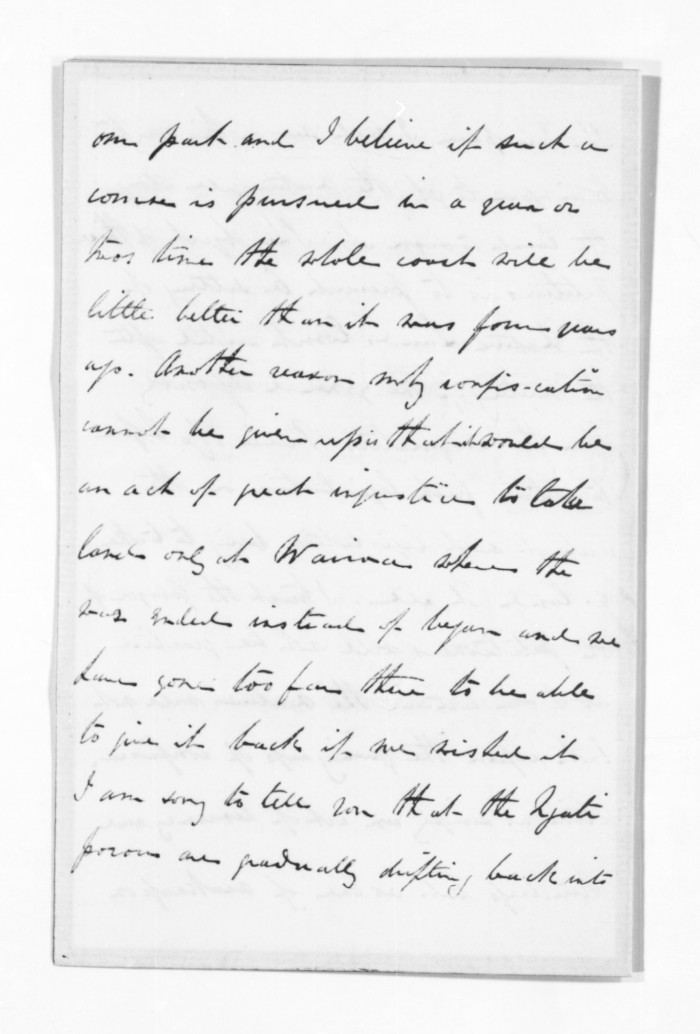 our part and I believe if such a
course is pursued in a year or
two time the whole coast will be
little better than it was four years
ago. Another reason why confis-cation
cannot be given up is that it would be
an act of great injustice to take
land only at Wairoa where the
war ended instead of began and we
have gone too far there to be able
to give it back if we wished it
I am sorry to tell you that the Ngati
porou are gradually drifting back into